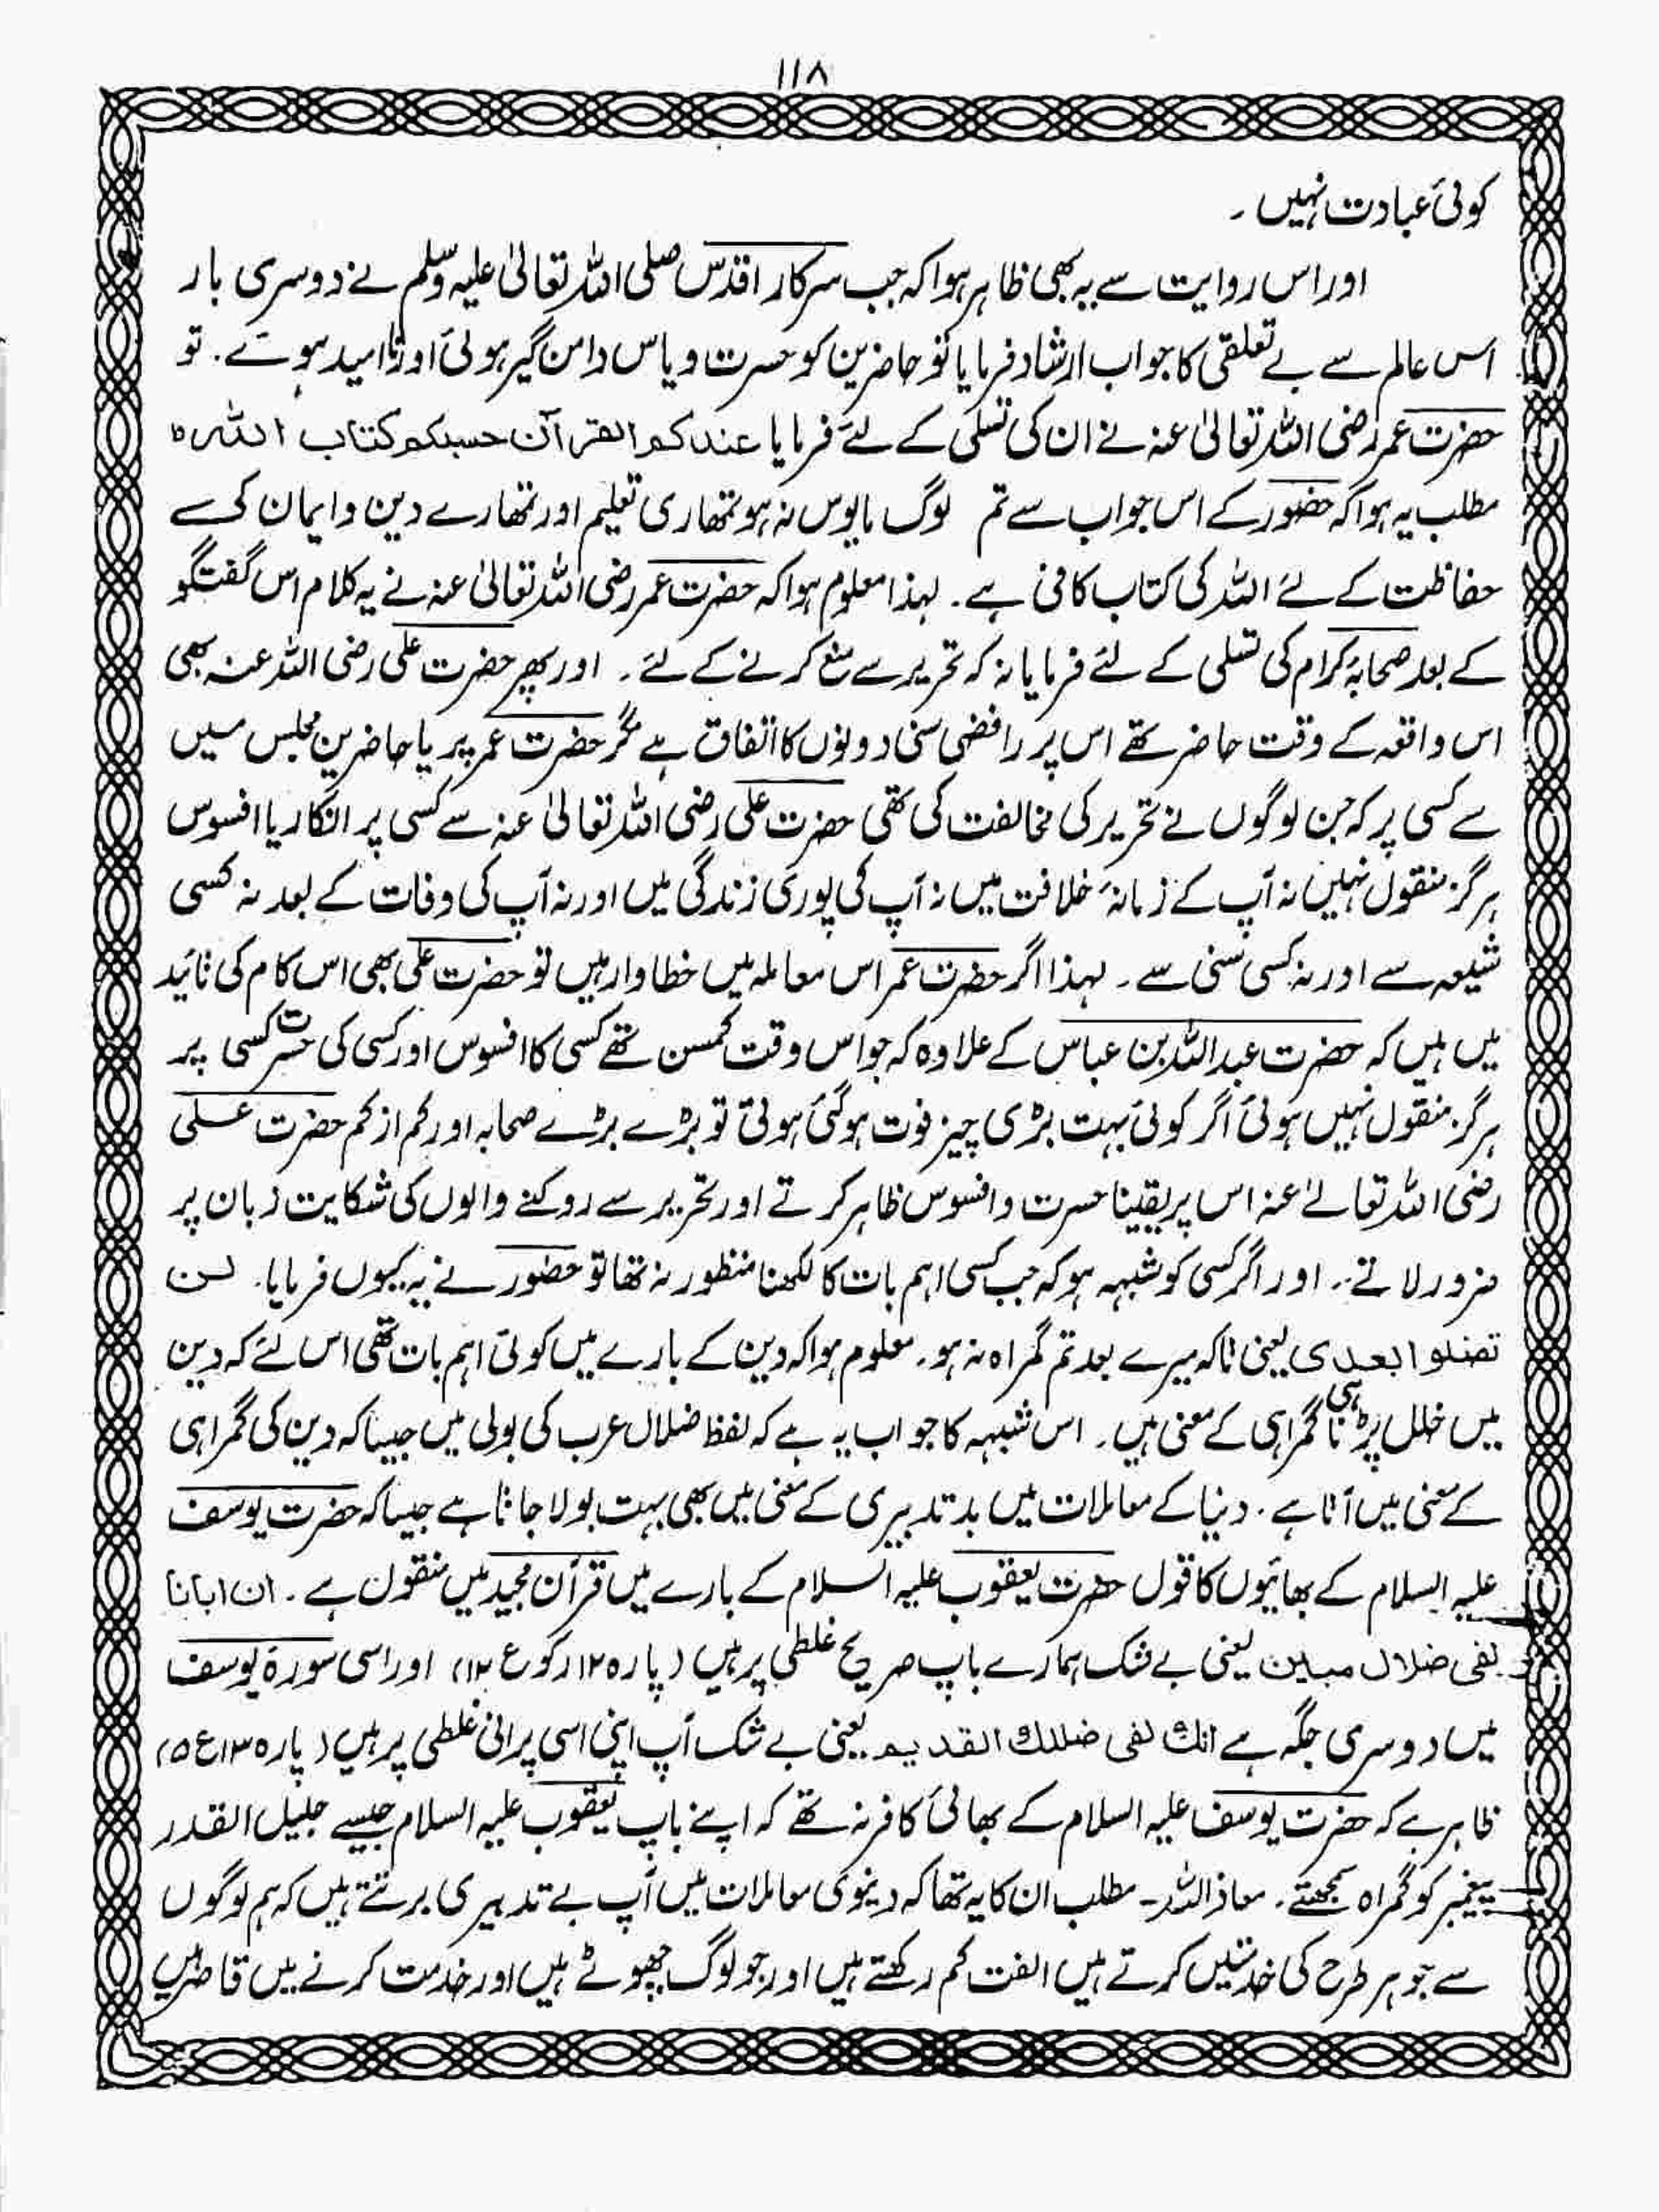 ۱۱۸
کوئی عبادت نہیں ۔
اور اس روایت سے یہ بھی ظاہر ہوا کہ جب سرکار اقدس صلی اللہ تعالیٰ علیہ وسلم نے دوسری بار
اس عالم سے بے تعلقی کا جواب ارشاد فرمایا تو حاضرین کو حسرت و یاس دامن گیر ہوئی اور ناامید ہوئے. تو
حضرت عمر رضی اللہ تعالیٰ عنہ نے ان کی تسلی کے لئے فرمایا عندکم القرآن حسبکم کتاب اللہ ہ
مطلب یہ ہوا کہ حضور کے اس جواب سے تم لوگ مایوس نہ ہو تمھاری تعلیم اور تمھارے دین و ایمان کے
حفاظت کے لئے اللہ کی کتاب کافی ہے ۔ لہذا معلوم ہوا کہ حضرت عمر رضی اللہ تعالیٰ عنہ نے یہ کلام اس گفتگو
کے بعد صحابہ کرام کی تسلی کے لئے فرمایا نہ کہ تحریر سے منع کرنے کے لئے ۔ اور پھر حضرت علی رضی اللہ عنہ بھی
اس واقعہ کے وقت حاضر تھے اس پر رافضی سنی دونوں کا اتفاق ہے مگر حضرت عمر پر یا حاضرین مجلس میں
سے کسی پر کہ جن لوگوں نے تحریر کی مخالفت کی تھی حضرت علی رضی اللہ تعالیٰ عنہ سے کسی پر انکار یا افسوس
ہرگز منقول نہیں نہ آپ کے زمانۂ خلافت میں نہ آپ کی پوری زندگی میں اور نہ آپ کی وفات کے بعد نہ کسی
شیعہ سے اور نہ کسی سنی سے ۔ لہذا اگر حضرت عمر اس معاملہ میں خطاوار ہیں تو حضرت علی بھی اس کام کی تائید
میں ہیں کہ حضرت عبداللہ بن عباس کے علاوہ کہ جو اس وقت کمسن تھے کسی کا افسوس اور کسی کی حسرت کسی پر
ہرگز منقول نہیں ہوئی اگر کوئی بہت بڑی چیز فوت ہوگئی ہوتی تو بڑے بڑے صحابہ اور کم از کم حضرت علی
رضی اللہ تعالےٰ عنہ اس پر یقینا حسرت و افسوس ظاہر کرتے اور تحریر سے روکنے والوں کی شکایت زبان پر
ضرور لاتے ۔ اور اگر کسی کو شبہہ ہو کہ جب کسی اہم بات کا لکھنا منظور نہ تھا تو حضور نے یہ کیوں فرمایا. لن
تضلوا بعدی یعنی تاکہ میرے بعد تم گمراہ نہ ہو. معلوم ہوا کہ دین کے بارے میں کوئی اہم بات تھی اس لئے کہ دین
میں خلل پڑنا ہی گمراہی کے معنی ہیں ۔ اس شبہہ کا جواب یہ ہے کہ لفظ ضلال عرب کی بولی میں جیسا کہ دین کی گمراہی
کے معنی میں آتا ہے. دنیا کے معاملات میں بدتدبیری کے معنی میں بھی بہت بولا جاتا ہے جیسا کہ حضرت یوسف
علیہ السلام کے بھائیوں کا قول حضرت یعقوب علیہ السلام کے بارے میں قرآن مجید میں منقول ہے. ان ابانا
لفی ضلال مبین یعنی بے شک ہمارے باپ صریح غلطی پر ہیں (پارہ ۱۲ رکوع ۱۲) اور اسی سورۃ یوسف
میں دوسری جگہ ہے انک لفی ضللک القدیم یعنی بے شک آپ اپنی اسی پرانی غلطی پر ہیں (پارہ ۱۳ ع ۵)
ظاہر ہے کہ حضرت یوسف علیہ السلام کے بھائی کافر نہ تھے کہ اپنے باپ یعقوب علیہ السلام جیسے جلیل القدر
پیغمبر کو گمراہ سمجھتے. معاذ اللہ ۔ مطلب ان کا یہ تھا کہ دینوی معاملات میں آپ بے تدبیری برتتے ہیں کہ ہم لوگوں
سے جو ہر طرح کی خدمتیں کرتے ہیں الفت کم رکھتے ہیں اور جو لوگ چھوٹے ہیں اور خدمت کرنے میں قاصر ہیں